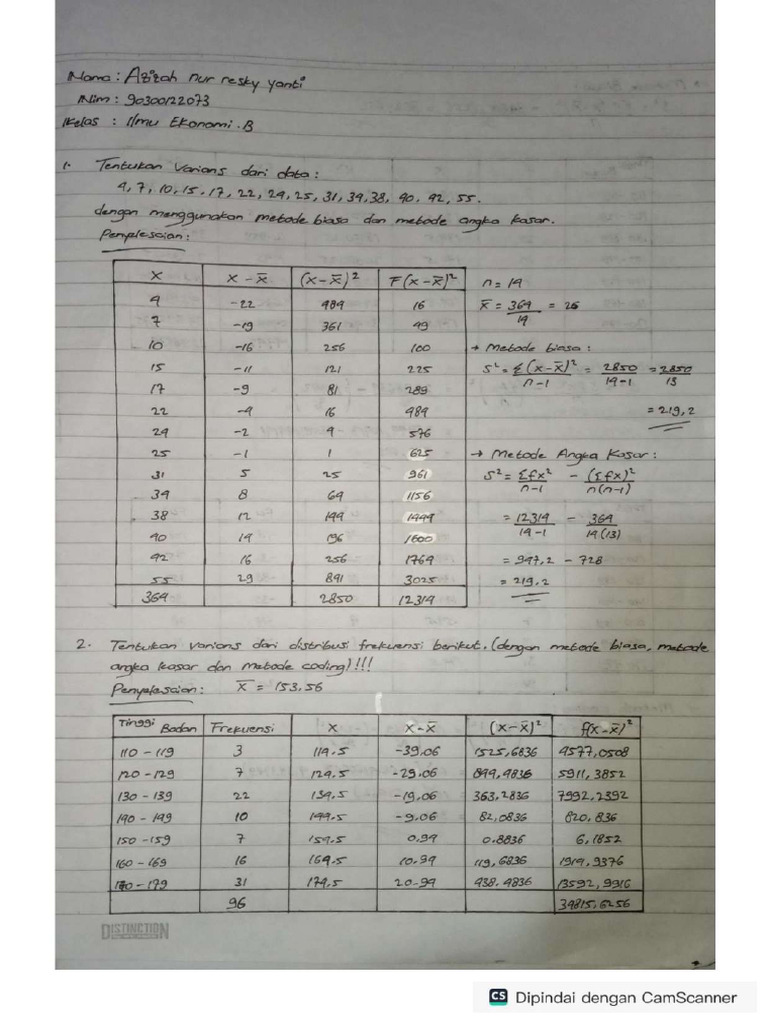 Nama : Azizah nur resky yanti
Nim : 90300122073
Kelas : Ilmu Ekonomi . B
1. Tentukan Varians dari data :
4, 7, 10, 15, 17, 22, 24, 25, 31, 34, 38, 40, 42, 55.
dengan menggunakan metode biasa dan metode angka kasar.
Penyelesaian :
x x - x̄ (x-x̄)² F(x-x̄)² n = 14
4 -22 484 16 x̄ = 364/14 = 26
7 -19 361 49
10 -16 256 100 → Metode biasa :
15 -11 121 225 S² = Σ(x-x̄)²/n-1 = 2850/14-1 = 2850/13
17 -9 81 289
22 -4 16 484 = 219,2
24 -2 4 576
25 -1 1 625 → Metode Angka Kasar :
31 5 25 961 S² = Σfx²/n-1 - (Σfx)²/n(n-1)
34 8 64 1156
38 12 144 1444 = 12314/14-1 - 364/14(13)
40 14 196 1600
42 16 256 1764 = 947,2 - 728
55 29 841 3025 = 219,2
364 2850 12314
2. Tentukan varians dari distribusi frekuensi berikut. (dengan metode biasa, metode
angka kasar dan metode coding) !!!
Penyelesaian : x̄ = 153,56
Tinggi Badan Frekuensi x x-x̄ (x-x̄)² f(x-x̄)²
110 - 119 3 114.5 -39.06 1525,6836 4577,0508
120 - 129 7 124.5 -29.06 844,4836 5911,3852
130 - 139 22 134.5 -19.06 363,2836 7992,2392
140 - 149 10 144.5 -9.06 82,0836 820,836
150 - 159 7 154.5 0,94 0.8836 6,1852
160 - 169 16 164.5 10.94 119,6836 1914,9376
170 - 179 31 174,5 20.94 438.4836 13592,9916
96 34815,6256
DISTINCTION
CS Dipindai dengan CamScanner